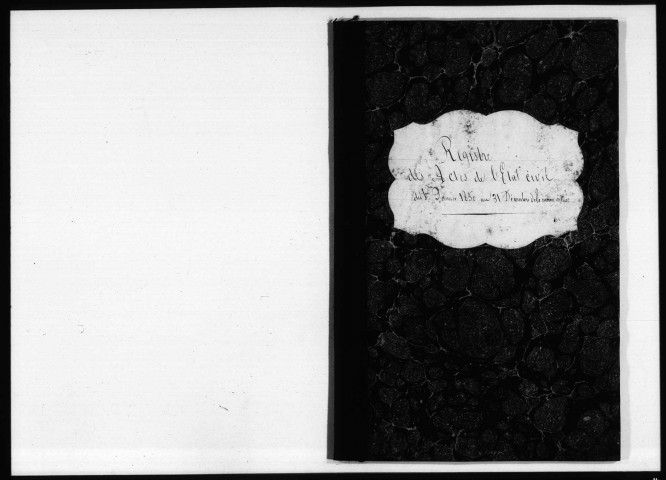 Registre
des Actes de l'Etat civil
du 1er Janvier 1850 au 31 Décembre de la même